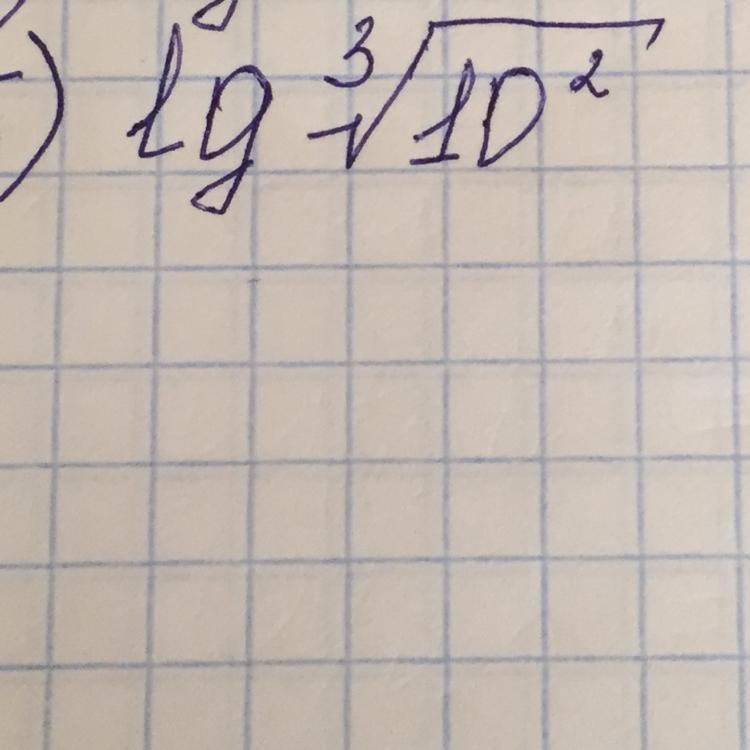 ) lg ∛10²